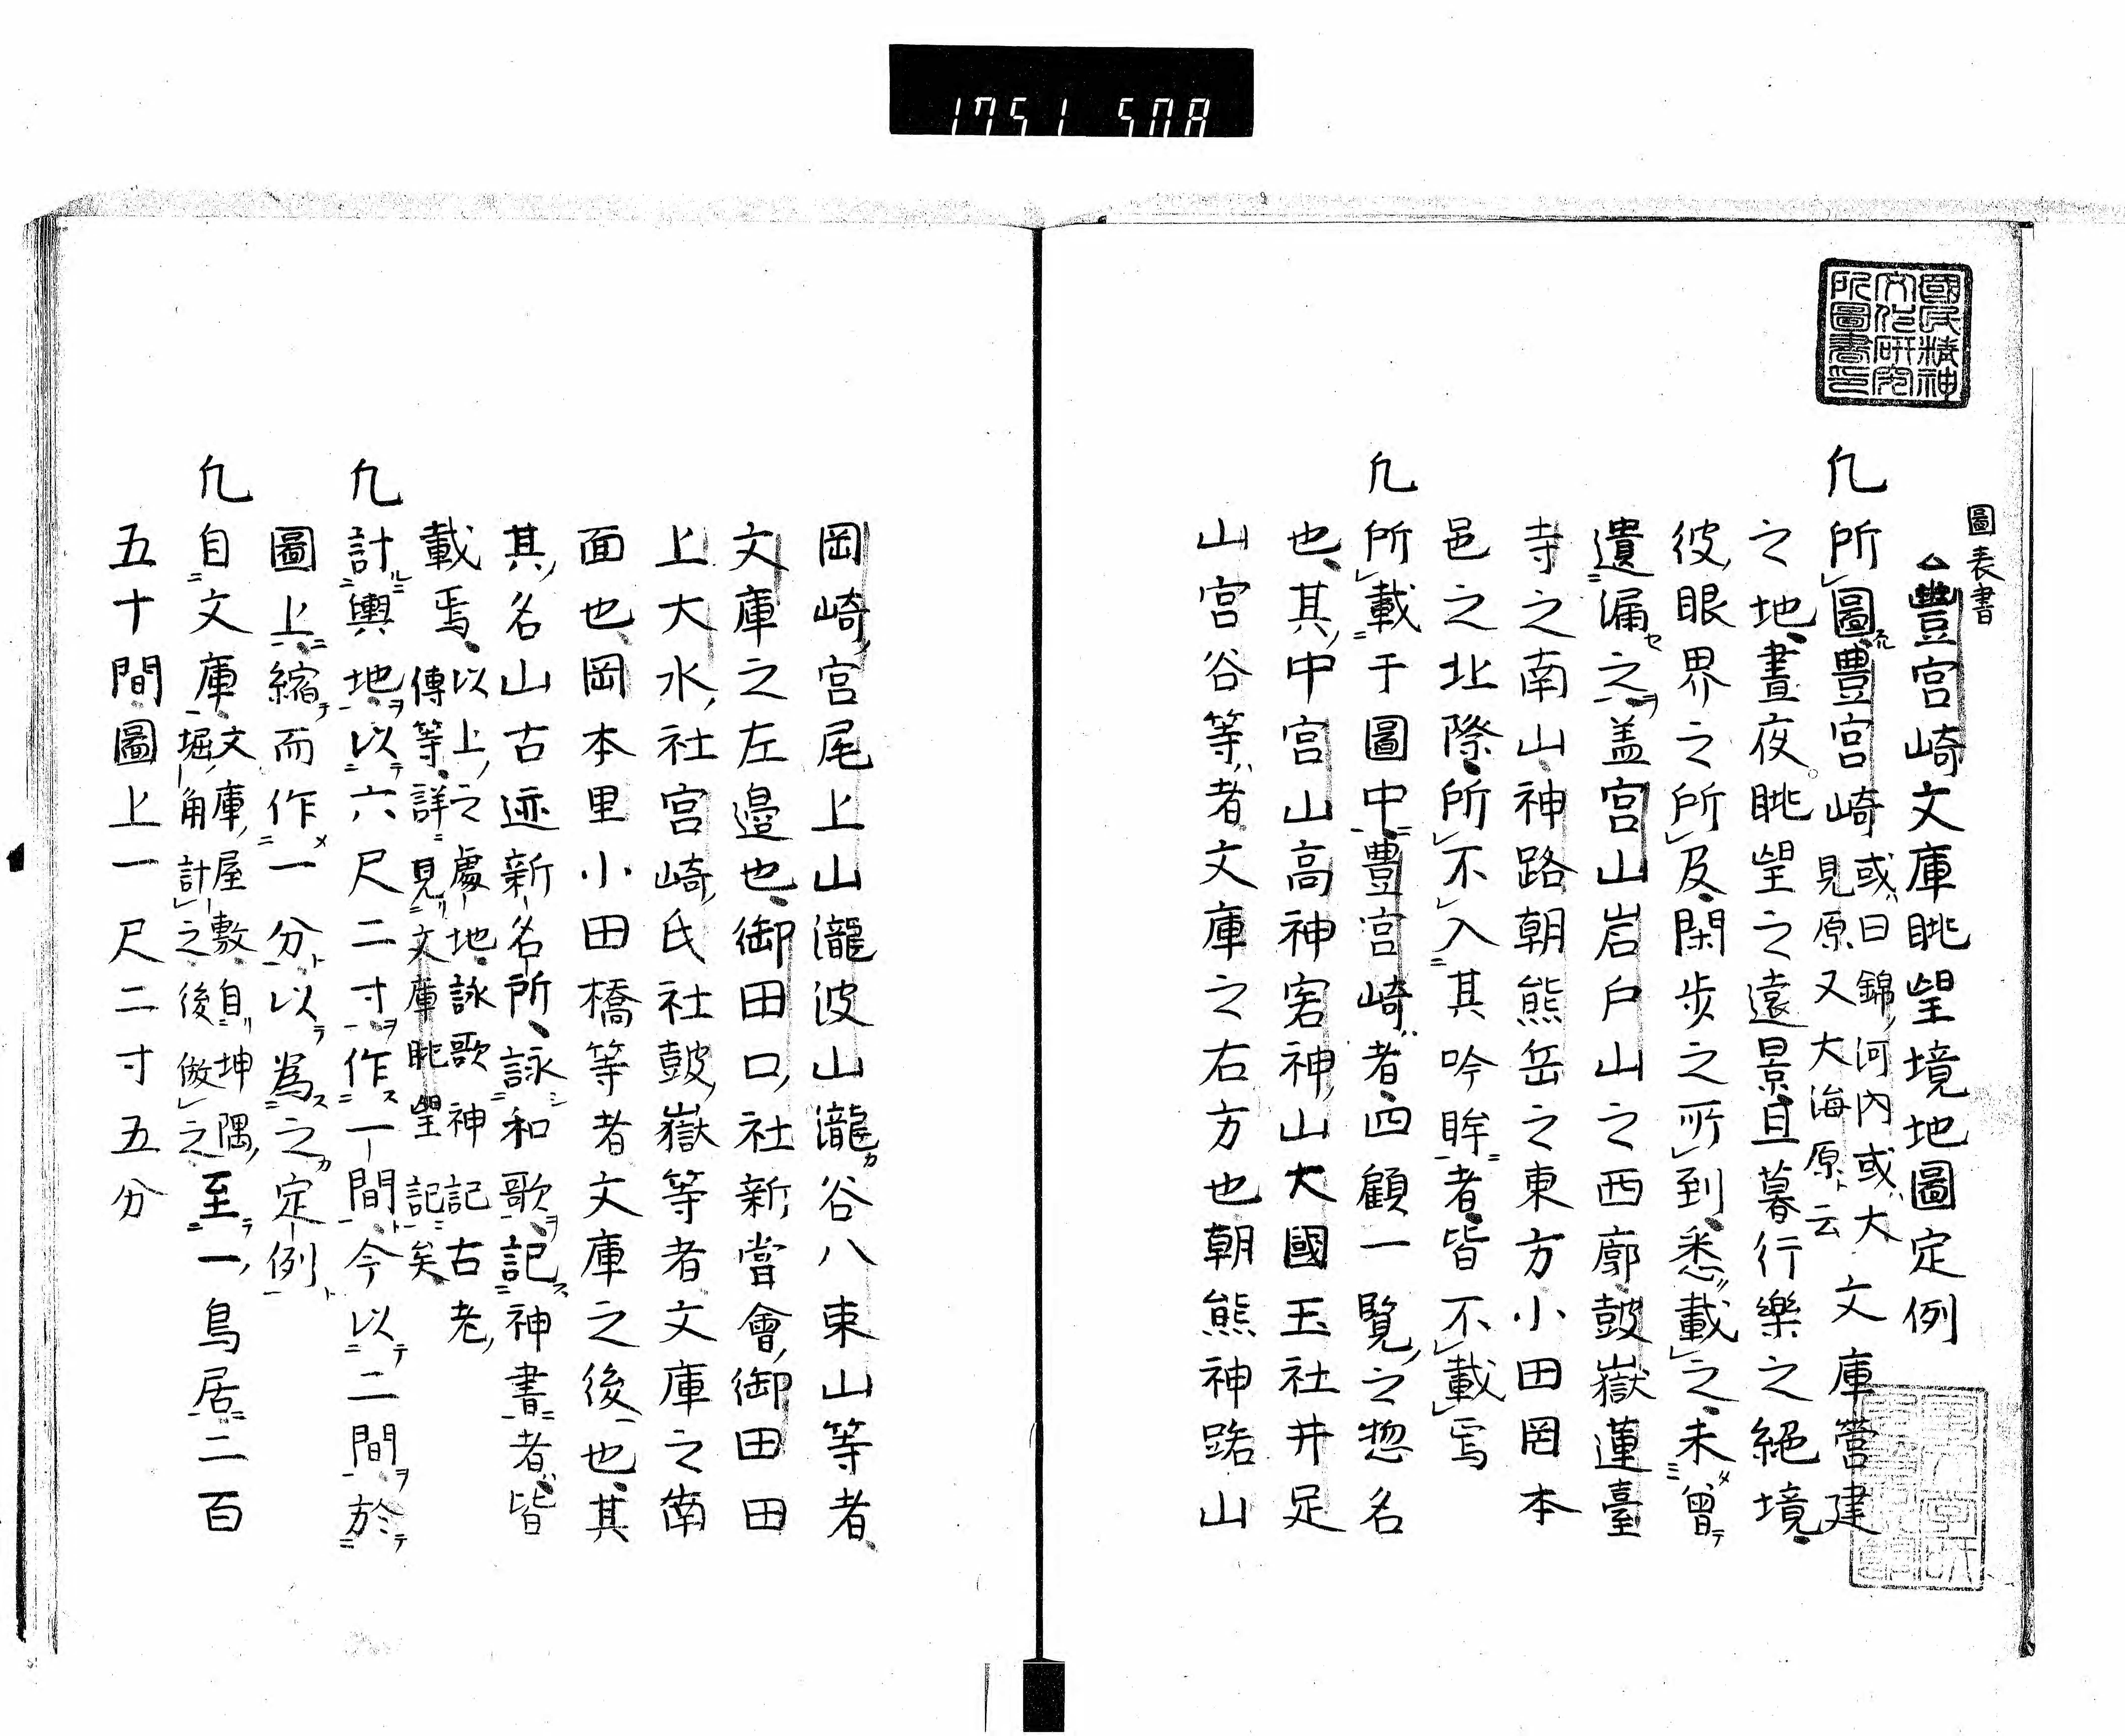 1751 508
國民精神
文化研究
所圖書印
圖表書
△豐宮崎文庫眺望境地圖定例
凢所圖豐宮崎或曰錦河内或大見原又大海原ト云文庫營建
之地晝夜眺望之遠景且暮行樂之絕境
彼眼界之所及閑步之所到悉載之未曾
遺漏之盖宮山岩戶山之西廓鼓嶽蓮臺
寺之南山神路朝熊岳之東方小田岡本
邑之北際所不入其吟眸者皆不載焉
凢所載于圖中豐宮崎者四顧一覽之惣名
也其中宮山高神客神山大國玉社井足
山宮谷等者文庫之右方也朝熊神路山
岡崎宮尾上山瀧波山瀧谷八束山等者
文庫之左邊也御田口社新嘗會御田田
上大水社宮崎氏社鼓嶽等者文庫之南
面也岡本里小田橋等者文庫之後也其
其名山古迹新名所詠和歌記神書者皆
載焉以上之處地詠歌神記古老傳等詳見文庫眺望記矣
凢計輿地以六尺二寸作一間今以二間於
圖上縮而作一分以爲之定例
凢自文庫文庫屋敷自坤隅堀角計之後倣之至一鳥居二百
五十間圖上一尺二寸五分